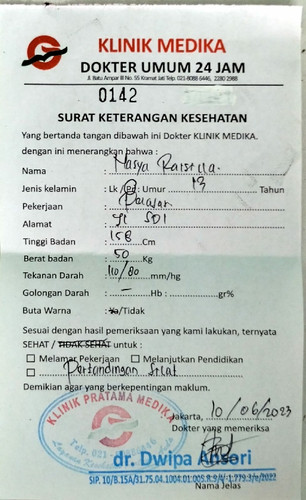 KLINIK MEDIKA
DOKTER UMUM 24 JAM
Jl. Batu Ampar III No. 55 Kramat Jati Telp. 021-8088 6446, 2280 2988
0142
SURAT KETERANGAN KESEHATAN
Yang bertanda tangan dibawah ini Dokter KLINIK MEDIKA.
dengan ini menerangkan bahwa :
Nama : Nasya
Jenis kelamin : Lk / Pr : Umur 13 Tahun
Pekerjaan : Pelajar
Alamat :
Tinggi Badan : 158 Cm
Berat badan : 50 Kg
Tekanan Darah : 110/80 mm/hg
Golongan Darah : — Hb : gr%
Buta Warna : Ya/Tidak
Sesuai dengan hasil pemeriksaan yang kami lakukan, ternyata
SEHAT / TIDAK SEHAT untuk :
Melamar Pekerjaan Melanjutkan Pendidikan
Pertandingan Silat
Demikian agar yang berkepentingan maklum.
KLINIK PRATAMA MEDIKA
Jakarta, 10/06/2023
Dokter yang memeriksa
dr. Dwipa Ansori
Nama Jelas